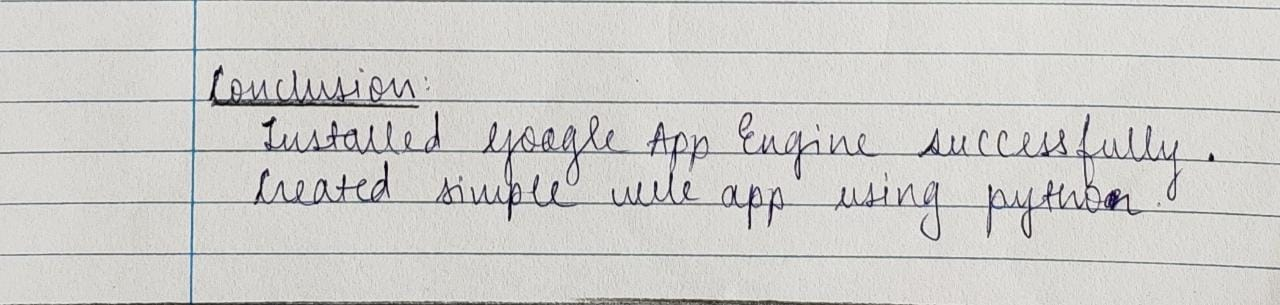 Conclusion:
Installed Google App Engine successfully.
Created simple web app using python.